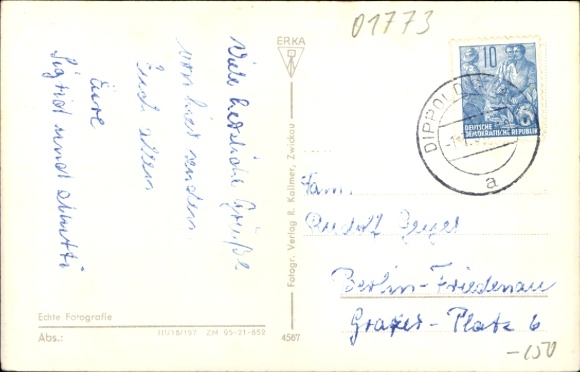 01773
ERKA
Viele herzliche Grüße
von hier senden
Euch allen
Eure
Sigrid und Mutti
Echte Fotografie
III/18/197 ZM 95-21-852
Abs.:
4567
Fotogr. Verlag R. Kallmer, Zwickau
10
DEUTSCHE
DEMOKRATISCHE REPUBLIK
DIPPOLDI
a
Fam.
Rudolf Geyer
Berlin-Friedenau
Grazer-Platz 6
-150